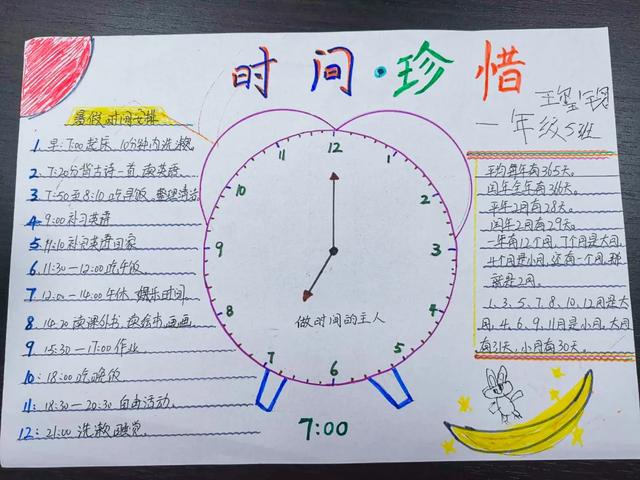 时间·珍惜
一年级5班
暑假时间安排
1 早:7:00起床,10分钟内洗漱
2、7:20分背古诗一首,读英语。
3、7:50至8:10吃早饭、整理清洁
4、9:00补习英语
5、11:10补习英语回家
6、11:30-12:00吃午饭
7、12:00-14:00午休、娱乐时间
8、14:20读课外书,读绘本,画画
9 15:30-17:00作业、
10:18:00吃晚饭
11:18:30-20:30自由活动。
12:21:00洗漱睡觉。
12
1
2
3
4
5
6
7
8
9
10
11
做时间的主人
7:00
平均每年有365天。
闰年全年有366天。
平年2月有28天。
闰年2月有29天。
一年有12个月,7个月是大月
4个月是小月,还有一个月,那
就是2月。
1、3、5、7、8、10、12月是大
月,4、6、9、11月是小月,大月
有31天,小月有30天。